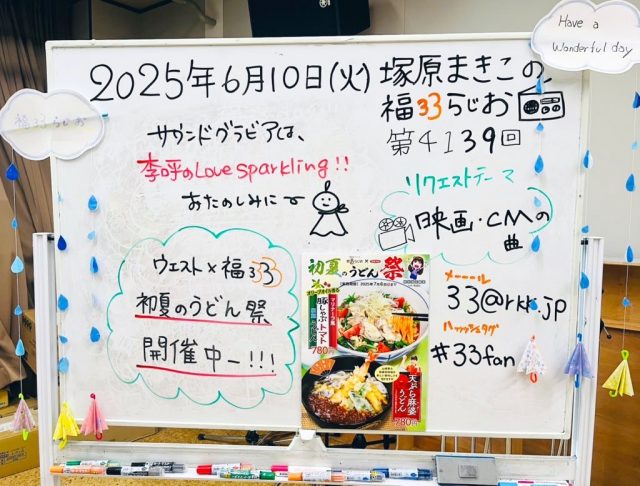 Have a
Wonderful day
福33らじお
2025年6月10日(火)塚原まきこの
福33らじお
第4139回
サウンドグラビアは、
李呼のLove sparkling!!
おたのしみに〜
リクエストテーマ
映画・CMの
曲
ウエスト×福333
初夏のうどん祭
開催中ー!!!
メーール
33@rkk.jp
ハッシュタグ
#33fan
初夏のうどん祭
豚しゃぶトマト
780円
天ぷら麻婆
うどん
780円